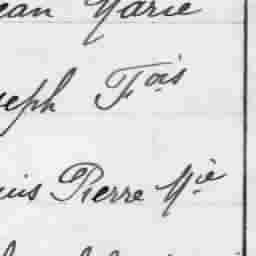 ean Marie
seph Fois
uis Pierre Mie